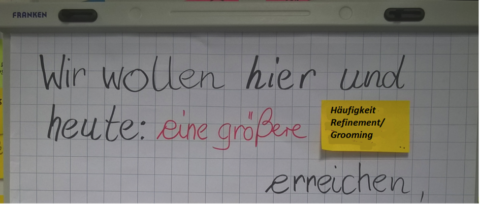 FRANKEN
Wir wollen hier und
heute: eine größere
Häufigkeit
Refinement/
Grooming
erreichen,